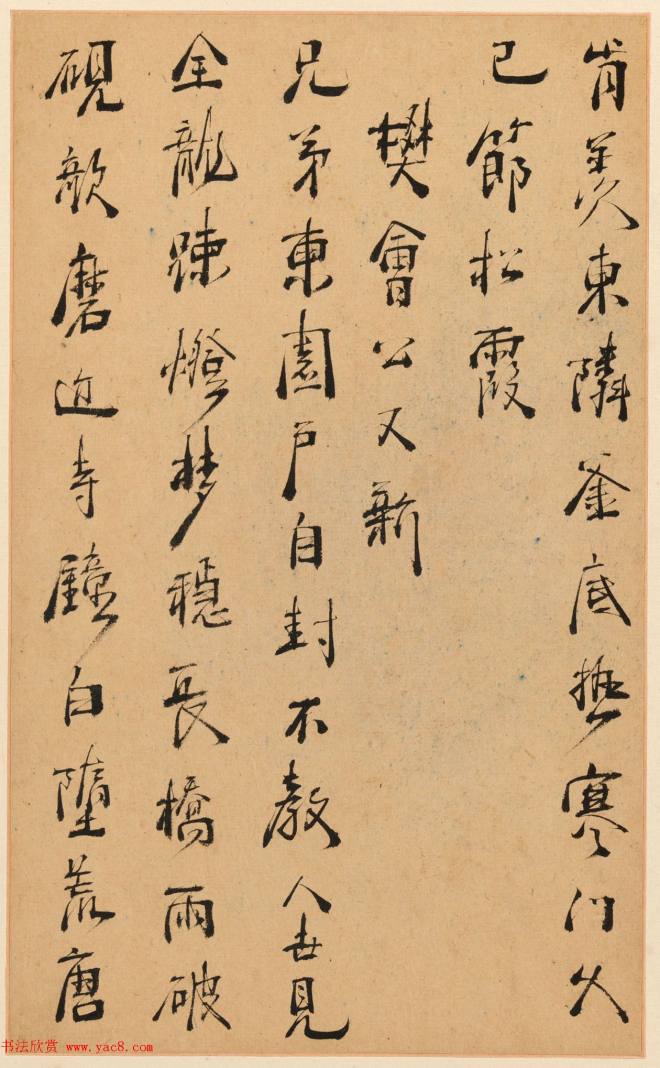 肯羨東隣釜底𤍠寒門久
已節松霞
樊會公又新
兄弟東園戶自封不教人世見
全龍踈燈夢穩長橋雨破
硯歌磨近寺鐘白墮荒唐
书法欣赏 www.yac8.com